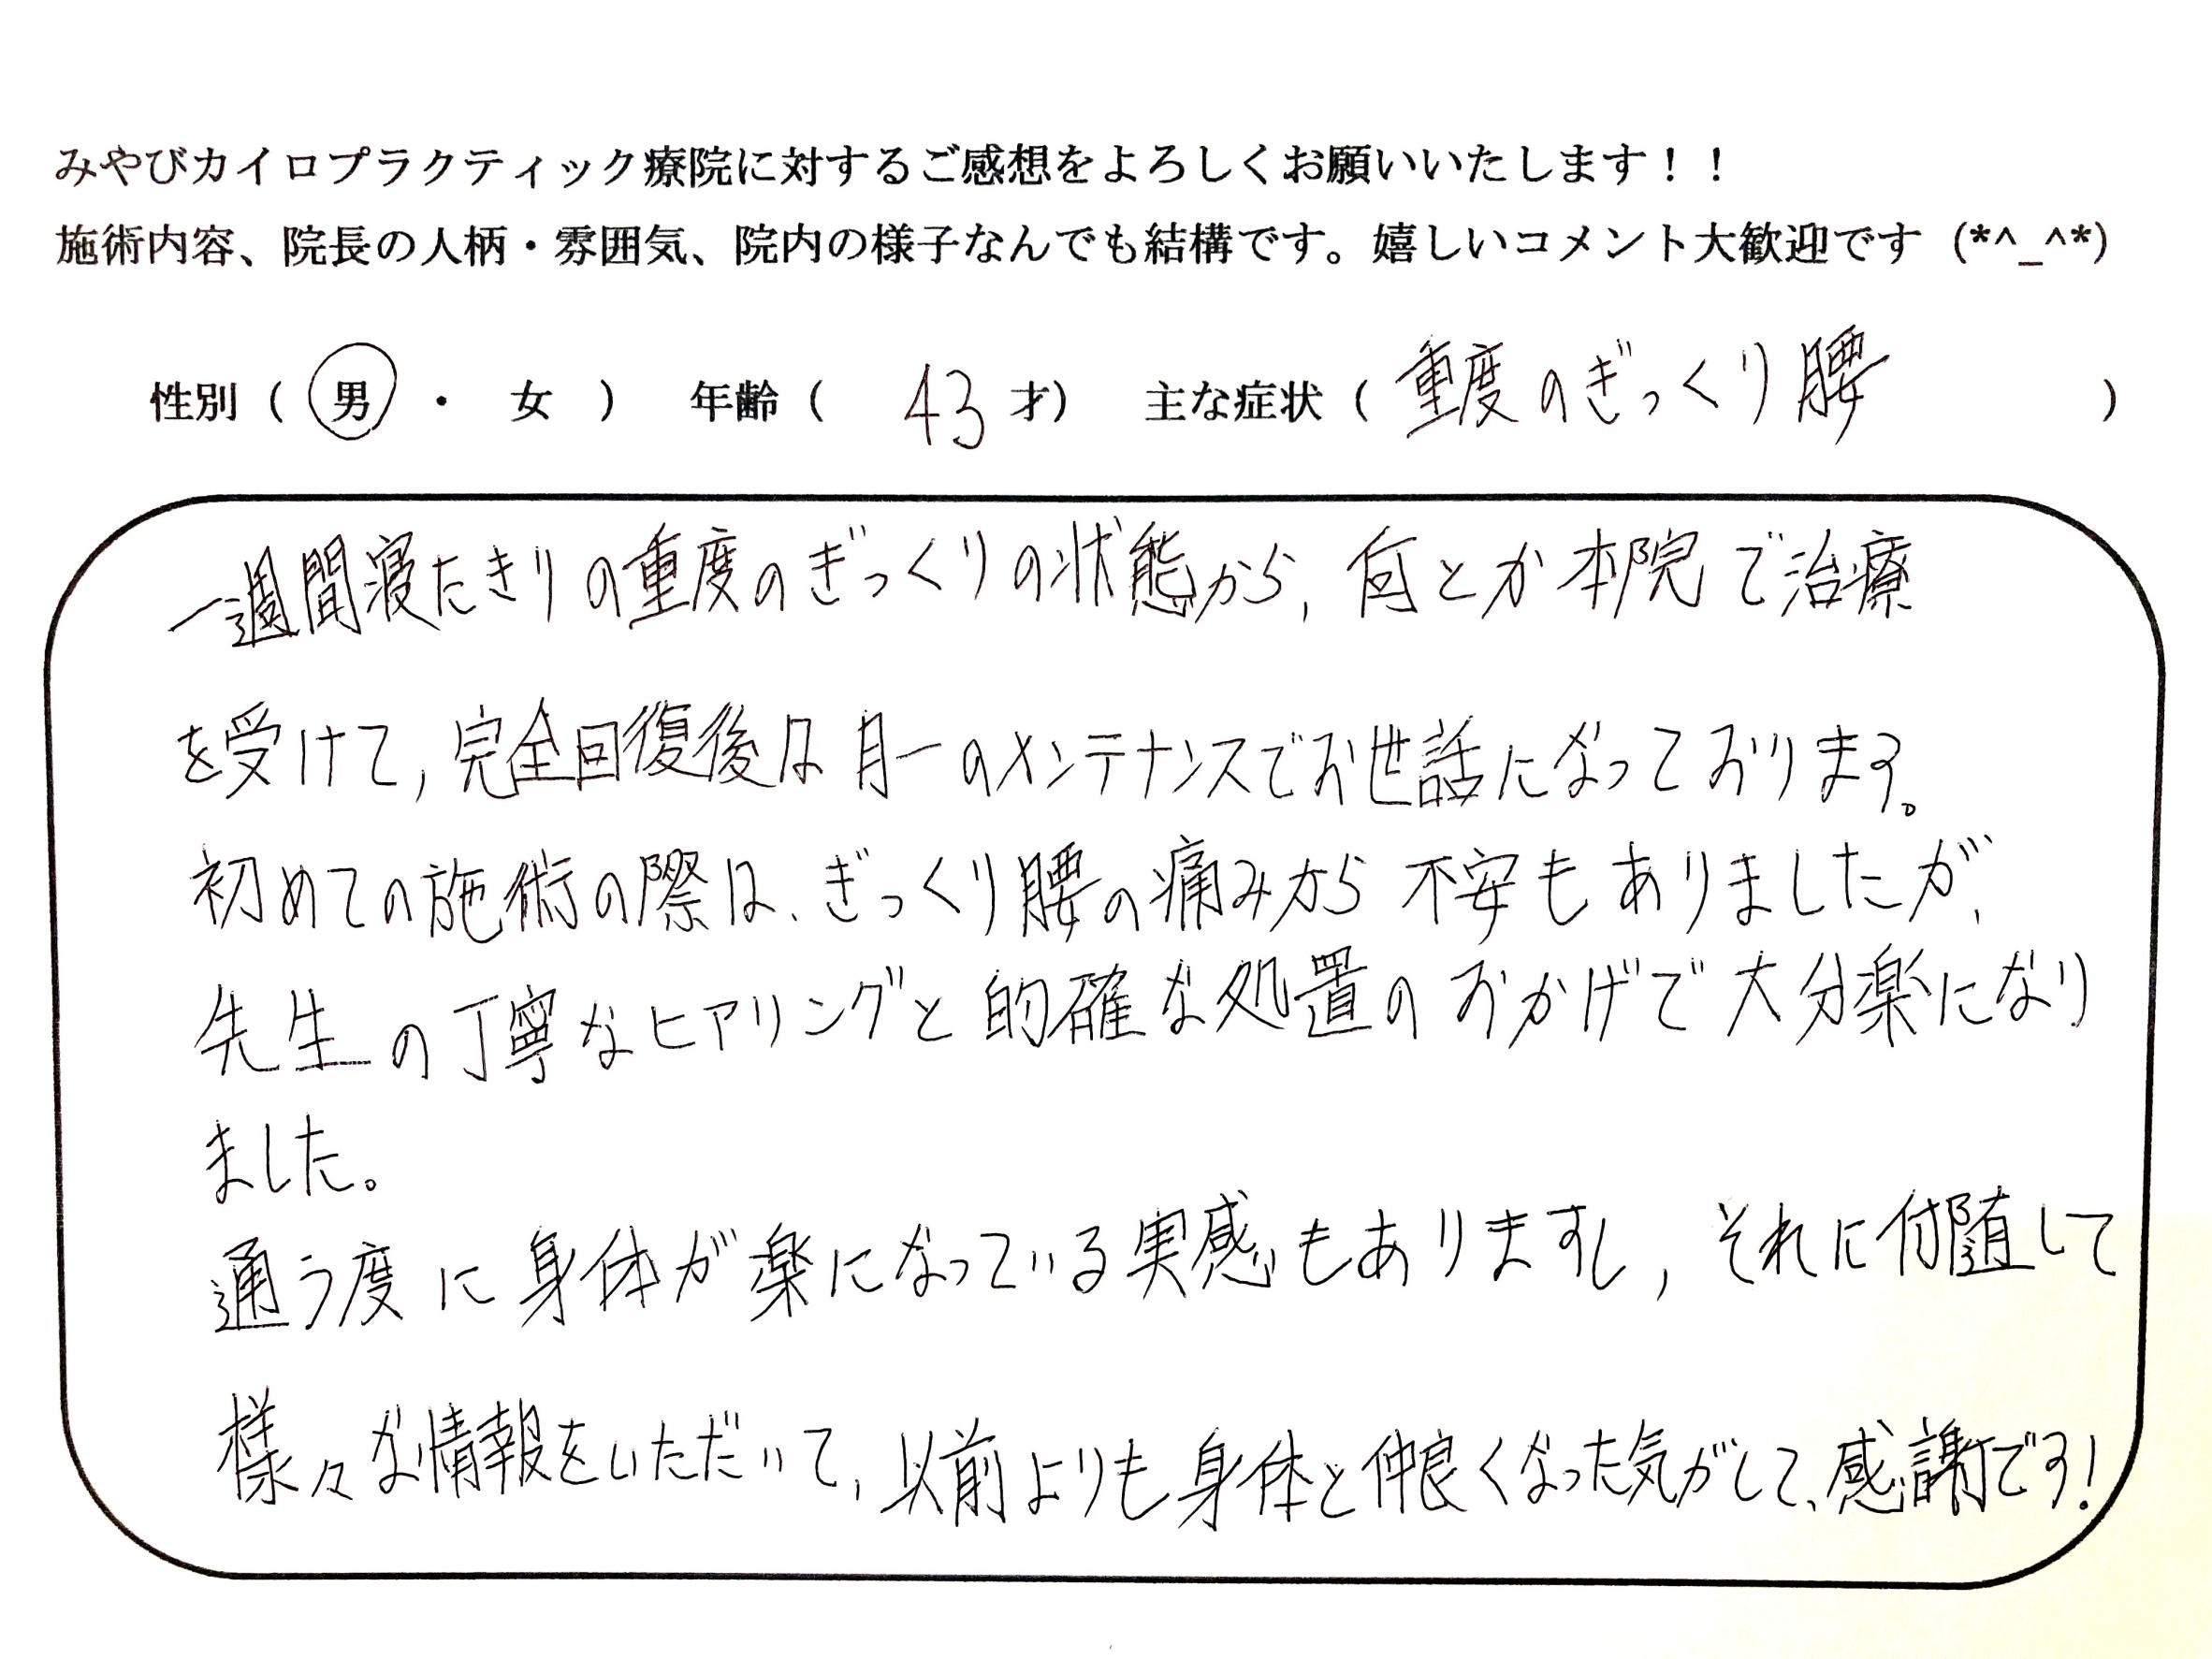 みやびカイロプラクティック療院に対するご感想をよろしくお願いいたします！！
施術内容、院長の人柄・雰囲気、院内の様子なんでも結構です。嬉しいコメント大歓迎です (*^_^*)
性別（ 男 ・ 女 ） 年齢（ 43 才） 主な症状（ 重度のぎっくり腰 ）
一週間寝たきりの重度のぎっくりの状態から, 何とか本院で治療
を受けて, 完全回復後は月一のメンテナンスでお世話になっております。
初めての施術の際は、ぎっくり腰の痛みから不安もありましたが、
先生の丁寧なヒアリングと的確な処置のおかげで大分楽になり
ました。
通う度に身体が楽になっている実感もありますし, それに付随して
様々な情報をいただいて, 以前よりも身体と仲良くなった気がして、感謝です!